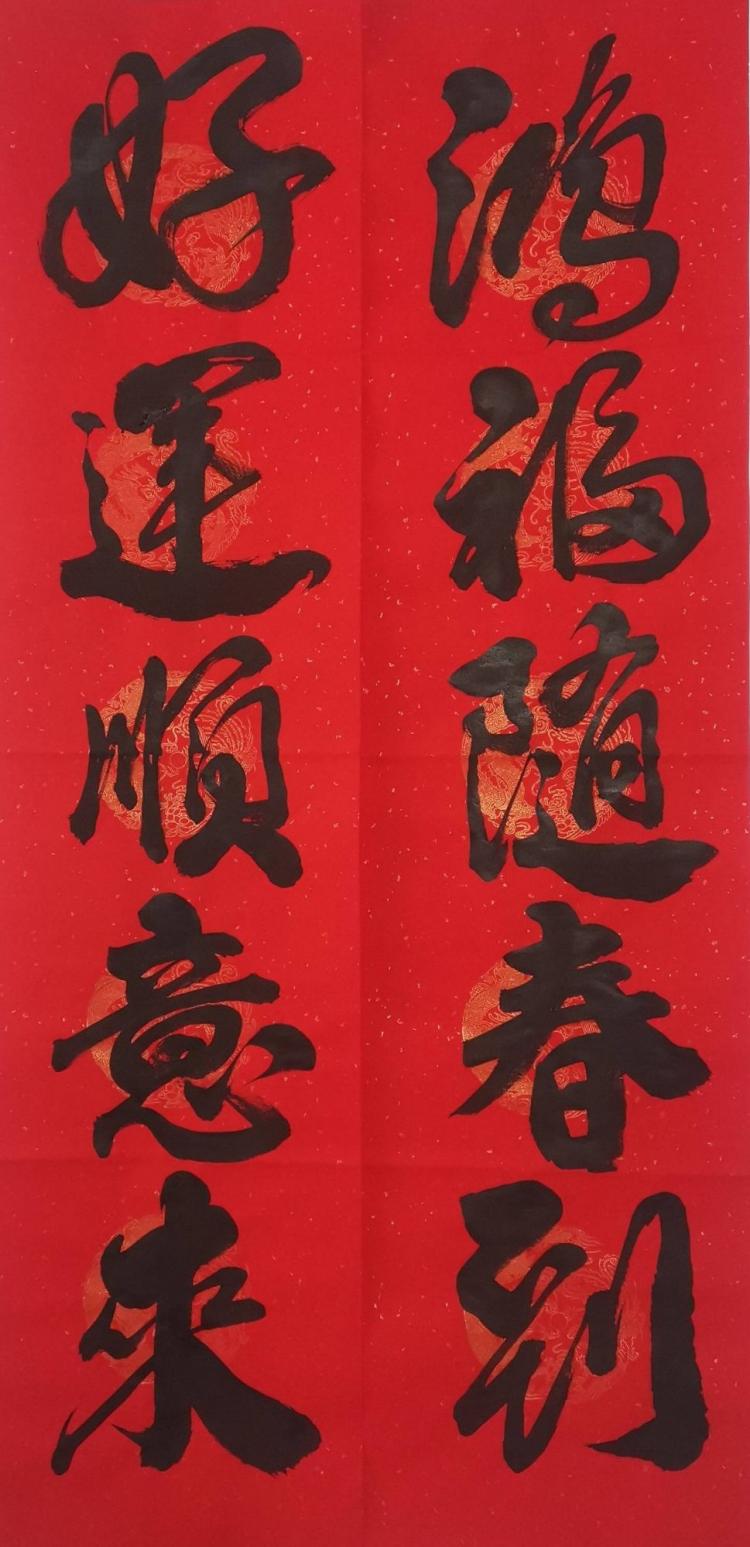 鴻福隨春到
好運順意來